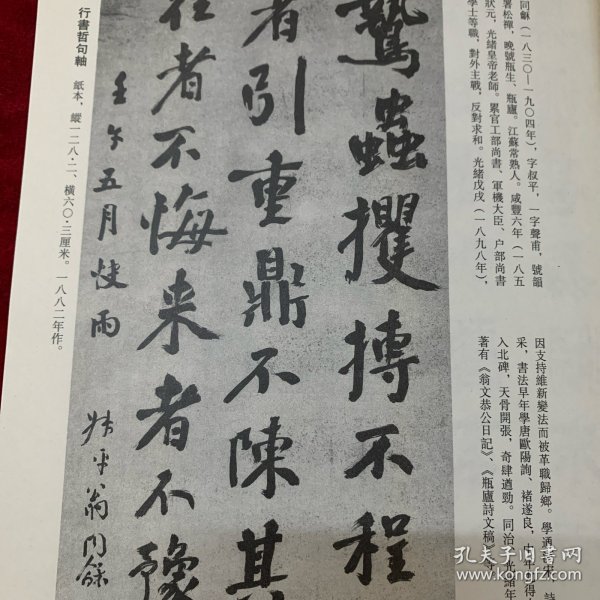 同龢（一八三〇—一九〇四年），字叔平，一字聲甫，號韻
署松禪，晚號瓶生、瓶廬。江蘇常熟人。咸豐六年（一八五
狀元，光緒皇帝老師。累官工部尚書、軍機大臣、户部尚書
學士等職，對外主戰，反對求和。光緒戊戌（一八九八年），
因支持維新變法而被革職歸鄉。學
采，書法早年學唐歐陽詢、褚遂良，中年
入北碑，天骨開張，奇肆遒勁。同治、光緒年
著有《翁文恭公日記》、《瓶廬詩文稿
鷙蟲攫搏不程
者引重鼎不陳其
往者不悔来者不豫
壬午五月快雨
叔平翁同龢
行書哲句軸
紙本，縱一三八·二、橫六〇·三厘米。一八八二年作。
孔夫子旧书网
www.kongfz.com